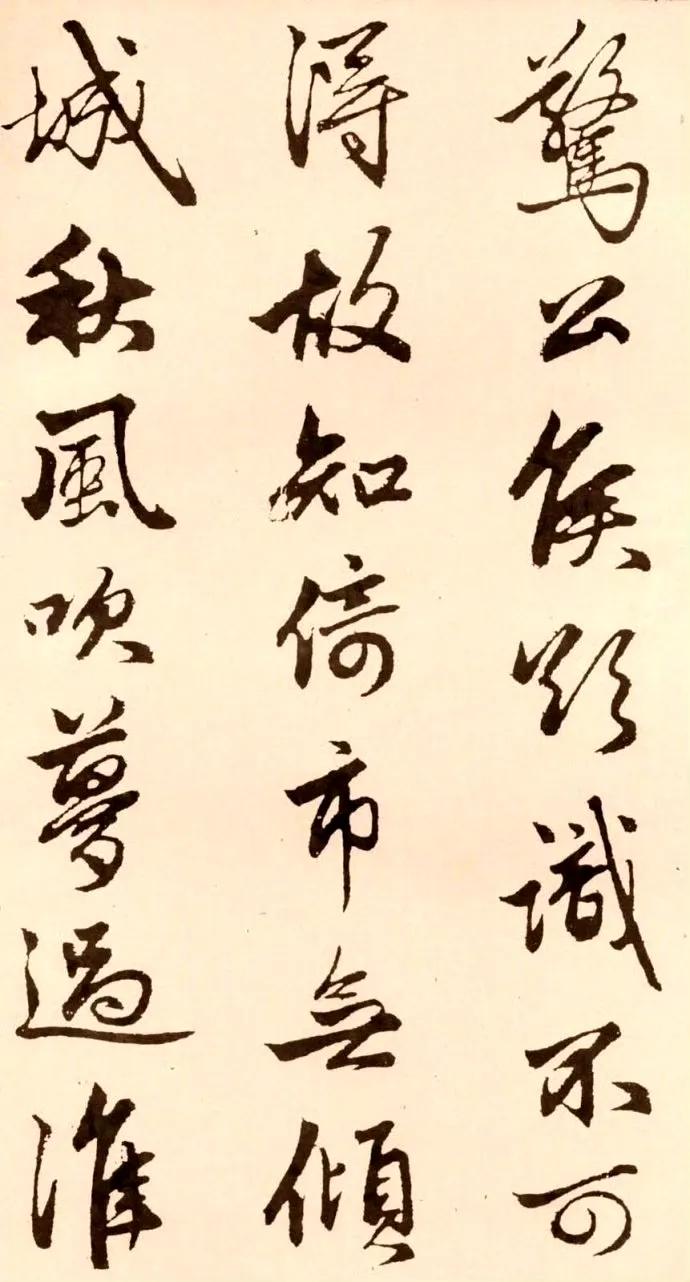 驚公侯欵識不可
得故知倚市無傾
城秋風吹夢過淮